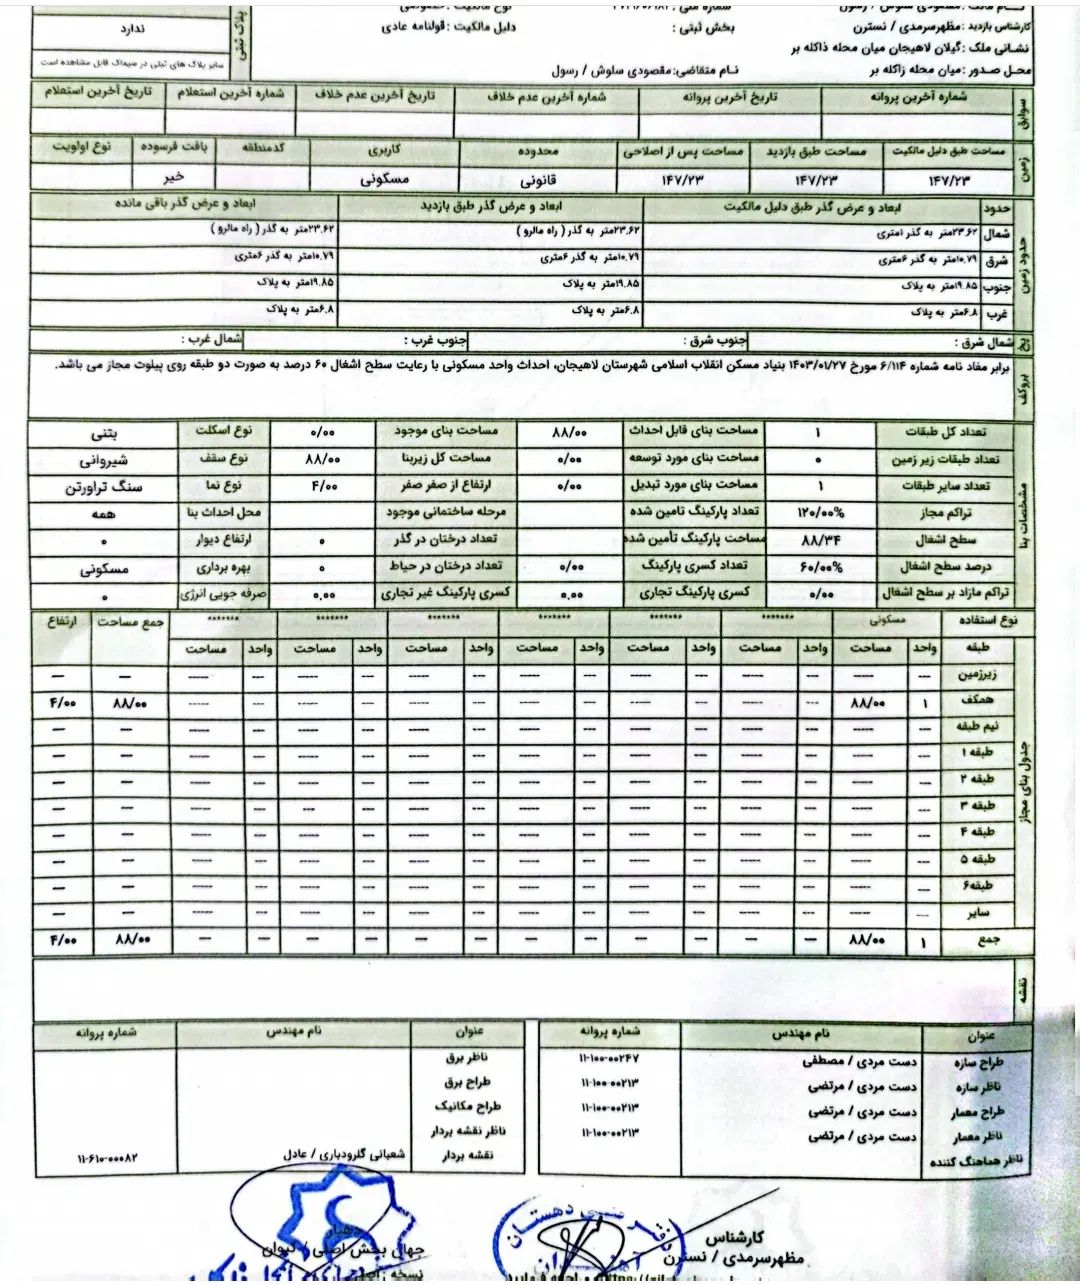 کارشناس بازدید :مظهرسرمدی / نسترن
بخش ثبتی :
دلیل مالکیت : قولنامه عادی
ندارد
پلاک ثبتی
نشانی ملک :گیلان لاهیجان میان محله ذاکله بر
محل صدور :میان محله زاکله بر
نام متقاضی:مقصودی سلوش / رسول
سایر پلاک های ثبتی در سیماک قابل مشاهده است
سوابق
شماره آخرین پروانه تاریخ آخرین پروانه شماره آخرین عدم خلاف تاریخ آخرین عدم خلاف شماره آخرین استعلام تاریخ آخرین استعلام
زمین
مساحت طبق دلیل مالکیت مساحت طبق بازدید مساحت پس از اصلاحی محدوده کاربری کدمنطقه بافت فرسوده نوع اولویت
۱۴۷/۲۳ ۱۴۷/۲۳ ۱۴۷/۲۳ قانونی مسکونی خیر
حدود زمین
حدود ابعاد و عرض گذر طبق دلیل مالکیت ابعاد و عرض گذر طبق بازدید ابعاد و عرض گذر باقی مانده
شمال ۲۳.۶۲متر به گذر ۱متری ۲۳.۶۲متر به گذر ( راه مالرو ) ۲۳.۶۲متر به گذر ( راه مالرو )
شرق ۱۰.۷۹متر به گذر ۶متری ۱۰.۷۹متر به گذر ۶متری ۱۰.۷۹متر به گذر ۶متری
جنوب ۱۹.۸۵متر به پلاک ۱۹.۸۵متر به پلاک ۱۹.۸۵متر به پلاک
غرب ۶.۸متر به پلاک ۶.۸متر به پلاک ۶.۸متر به پلاک
پخ
شمال شرق : جنوب شرق : جنوب غرب : شمال غرب :
بروکف
برابر مفاد نامه شماره ۶/۱۱۴ مورخ ۱۴۰۳/۰۱/۲۷ بنیاد مسکن انقلاب اسلامی شهرستان لاهیجان، احداث واحد مسکونی با رعایت سطح اشغال ۶۰ درصد به صورت دو طبقه روی پیلوت مجاز می باشد.
مشخصات بنا
تعداد کل طبقات ۱ مساحت بنای قابل احداث ۸۸/۰۰ مساحت بنای موجود ۰/۰۰ نوع اسکلت بتنی
تعداد طبقات زیر زمین ۰ مساحت بنای مورد توسعه ۰/۰۰ مساحت کل زیربنا ۸۸/۰۰ نوع سقف شیروانی
تعداد سایر طبقات ۱ مساحت بنای مورد تبدیل ۰/۰۰ ارتفاع از صفر صفر ۴/۰۰ نوع نما سنگ تراورتن
تراکم مجاز ۱۲۰/۰۰% تعداد پارکینگ تامین شده مرحله ساختمانی موجود محل احداث بنا همه
سطح اشغال ۸۸/۳۴ مساحت پارکینگ تأمین شده تعداد درختان در گذر ۰ ارتفاع دیوار ۰
درصد سطح اشغال ۶۰/۰۰% تعداد کسری پارکینگ ۰/۰۰ تعداد درختان در حیاط ۰ بهره برداری مسکونی
تراکم مازاد بر سطح اشغال ۰/۰۰ کسری پارکینگ تجاری ۰.۰۰ کسری پارکینگ غیر تجاری ۰.۰۰ صرفه جویی انرژی ۰
جدول بنای مجاز
نوع استفاده مسکونی ******* ******* ******* ******* ******* ******* جمع مساحت ارتفاع
طبقه واحد مساحت واحد مساحت واحد مساحت واحد مساحت واحد مساحت واحد مساحت واحد مساحت
زیرزمین --- ----- --- ----- --- ----- --- ----- --- ----- --- ----- --- ----- — —
همکف ۱ ۸۸/۰۰ --- ----- --- ----- --- ----- --- ----- --- ----- --- ----- ۸۸/۰۰ ۴/۰۰
نیم طبقه --- ----- --- ----- --- ----- --- ----- --- ----- --- ----- --- ----- — —
طبقه ۱ --- ----- --- ----- --- ----- --- ----- --- ----- --- ----- --- ----- — —
طبقه ۲ --- ----- --- ----- --- ----- --- ----- --- ----- --- ----- --- ----- — —
طبقه ۳ --- ----- --- ----- --- ----- --- ----- --- ----- --- ----- --- ----- — —
طبقه ۴ --- ----- --- ----- --- ----- --- ----- --- ----- --- ----- --- ----- — —
طبقه ۵ --- ----- --- ----- --- ----- --- ----- --- ----- --- ----- --- ----- — —
طبقه۶ --- ----- --- ----- --- ----- --- ----- --- ----- --- ----- --- ----- — —
سایر --- ----- --- ----- --- ----- --- ----- --- ----- --- ----- --- ----- — —
جمع ۱ ۸۸/۰۰ — — — — — — — — — — — — ۸۸/۰۰ ۴/۰۰
نقشه
عنوان نام مهندس شماره پروانه عنوان نام مهندس شماره پروانه
طراح سازه دست مردی / مصطفی ۱۱-۱۰۰-۰۰۲۴۷ ناظر برق
ناظر سازه دست مردی / مرتضی ۱۱-۱۰۰-۰۰۲۱۳ طراح برق
طراح معمار دست مردی / مرتضی ۱۱-۱۰۰-۰۰۲۱۳ طراح مکانیک
ناظر معمار دست مردی / مرتضی ۱۱-۱۰۰-۰۰۲۱۳ ناظر نقشه بردار
ناظر هماهنگ کننده نقشه بردار شعبانی گلرودباری / عادل ۱۱-۶۱۰-۰۰۰۸۲
کارشناس
مظهرسرمدی / نسترن
دهیار
جهان بخش اصلی / کیوان